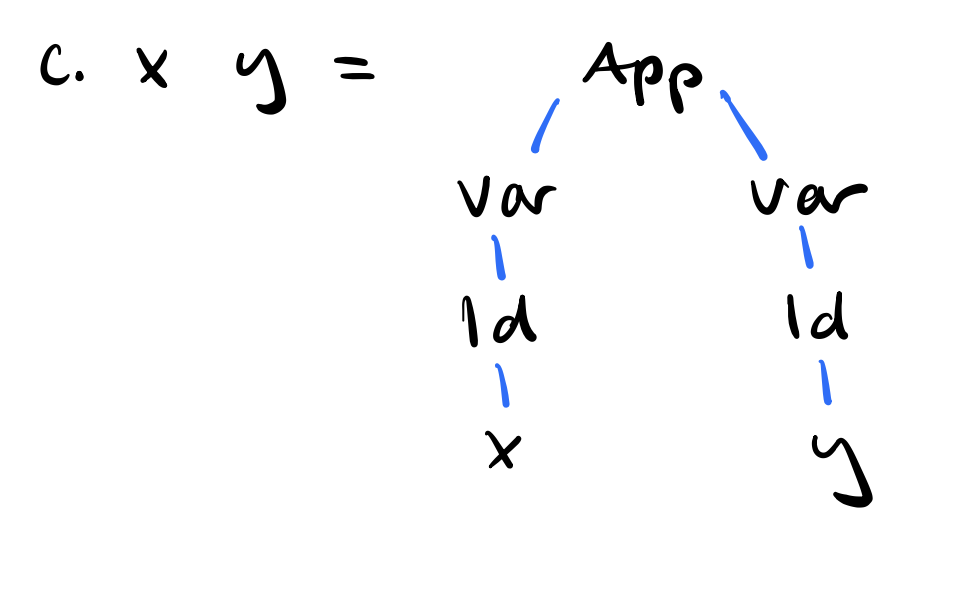 c. x y = App
var var
Id Id
x y